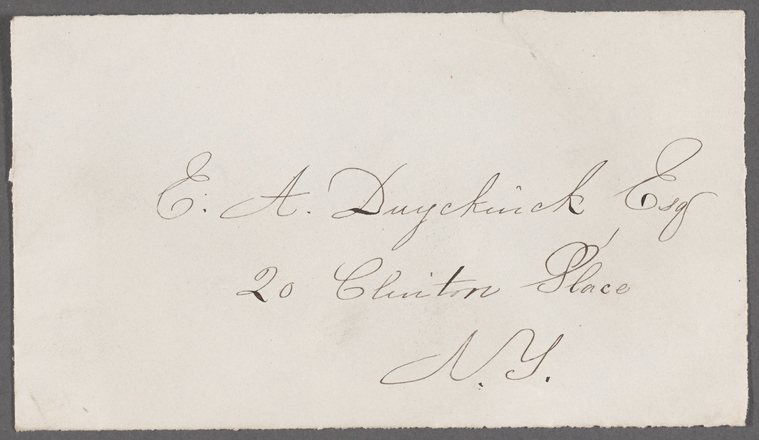 E. A. Duyckinck, Esq
20 Clinton Place
N.Y.